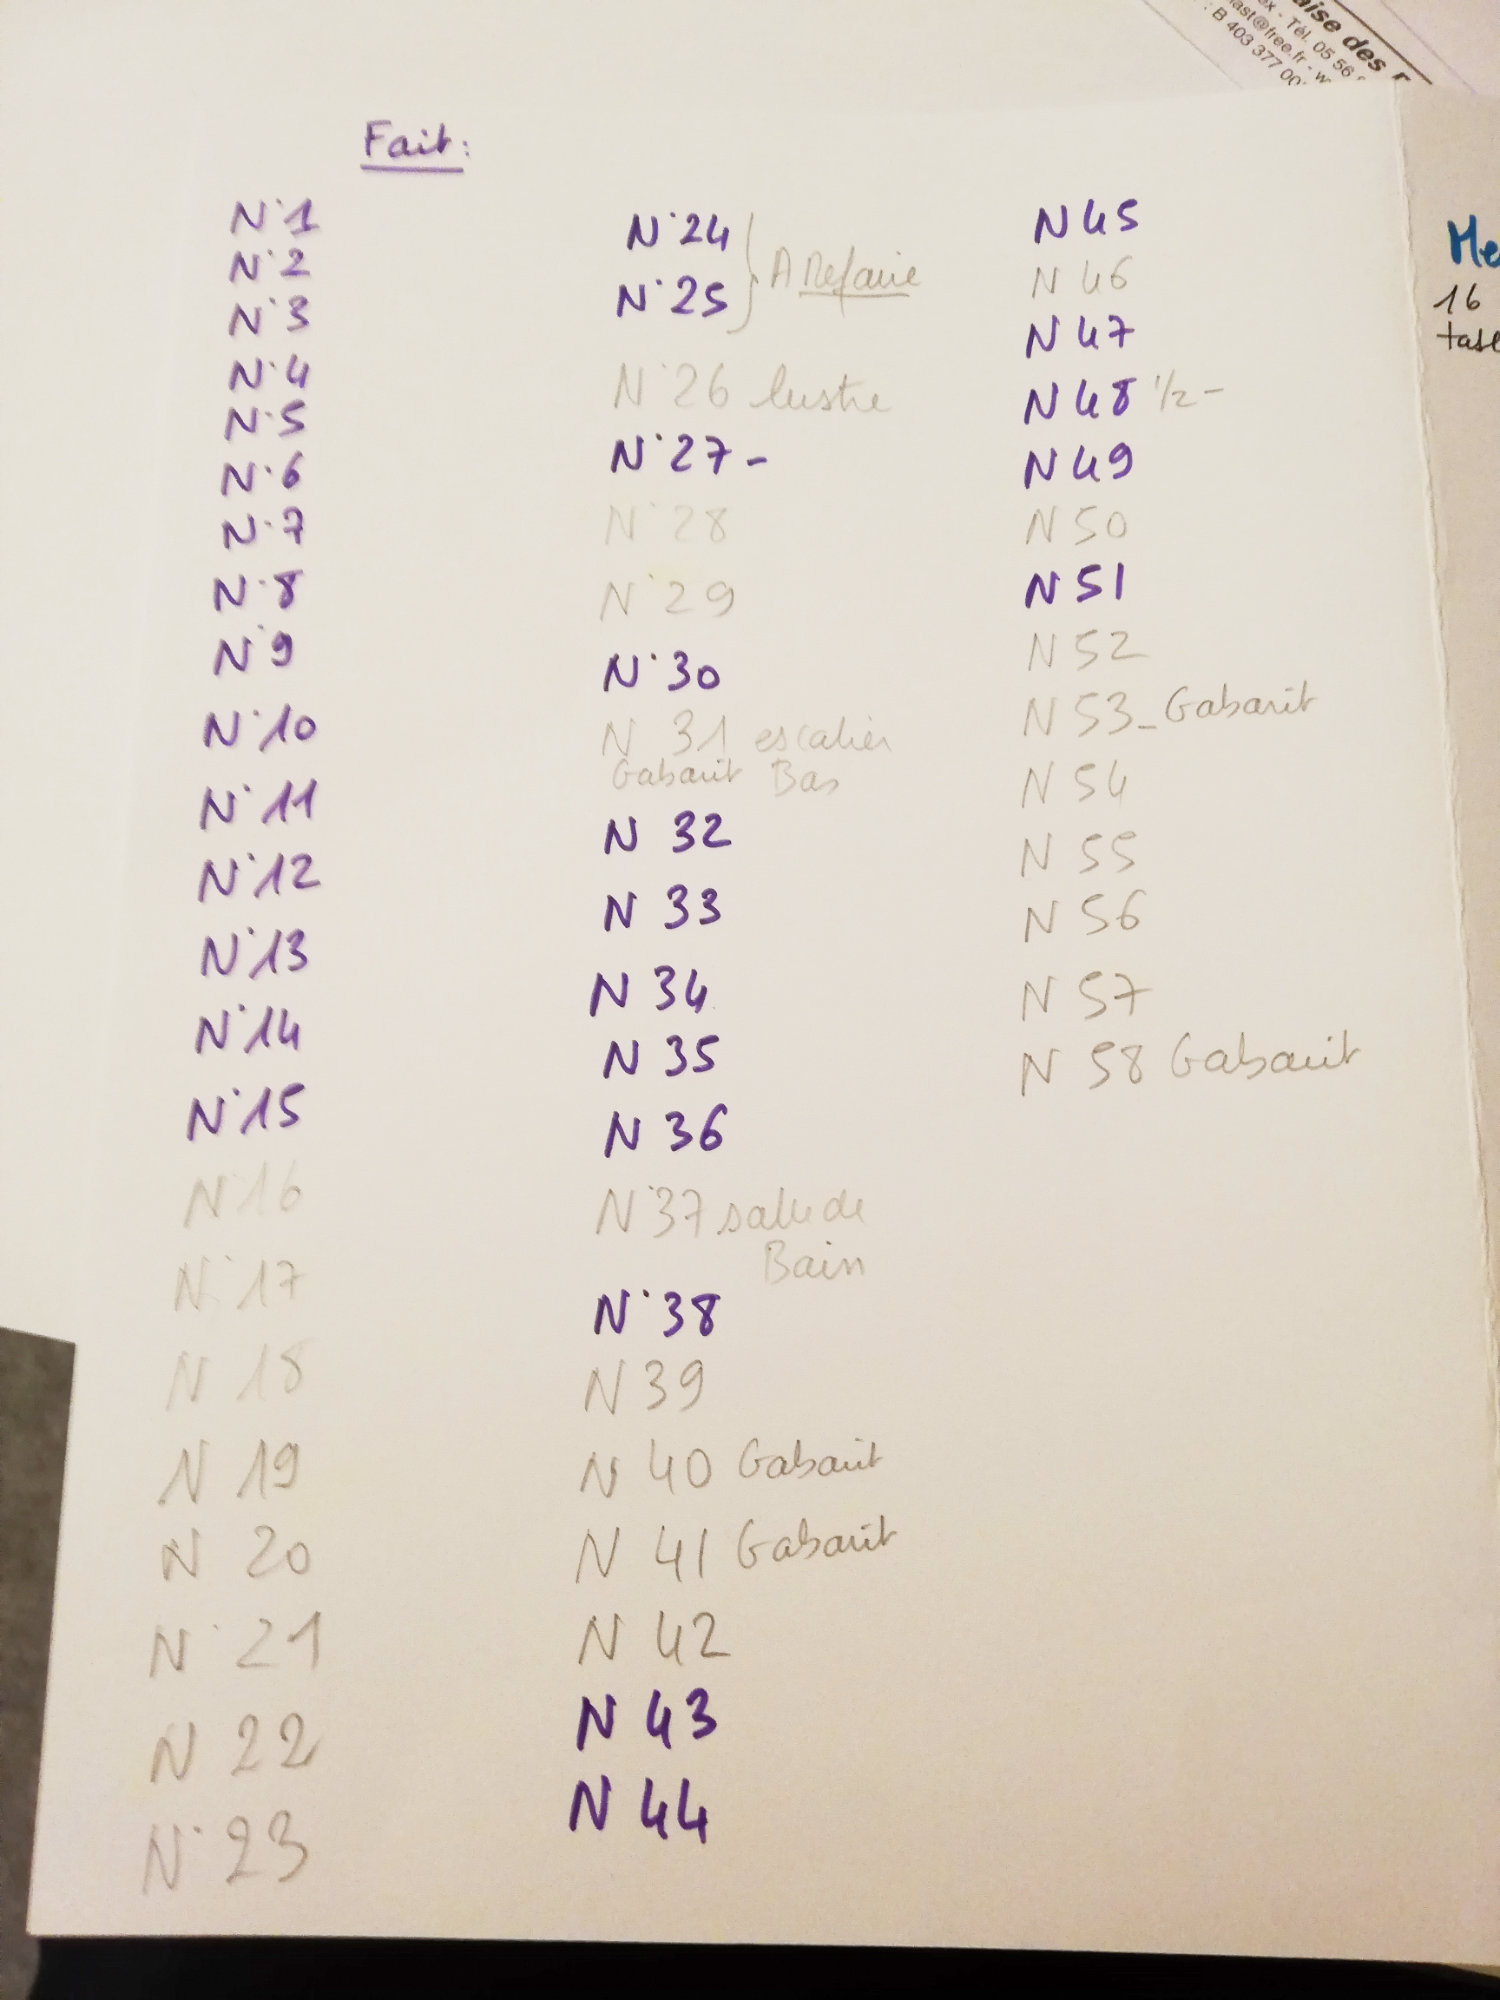 aise des
ex - Tél. 05 56
ast@free.fr - w
: B 403 377 00
Fait:
N°1
N°2
N°3
N°4
N°5
N°6
N°7
N°8
N°9
N°10
N°11
N°12
N°13
N°14
N°15
N°16
N°17
N 18
N 19
N 20
N°21
N 22
N°23
N°24
N°25
A Refaire
N°26 lustre
N°27 -
N°28
N°29
N°30
N 31 escalier
Gabarit Bas
N 32
N 33
N 34
N 35
N 36
N°37 salle de
Bain
N°38
N 39
N 40 Gabarit
N 41 Gabarit
N 42
N 43
N 44
N 45
N 46
N 47
N 48 1/2 -
N 49
N 50
N 51
N 52
N 53 - Gabarit
N 54
N 55
N 56
N 57
N 58 Gabarit
Me
16